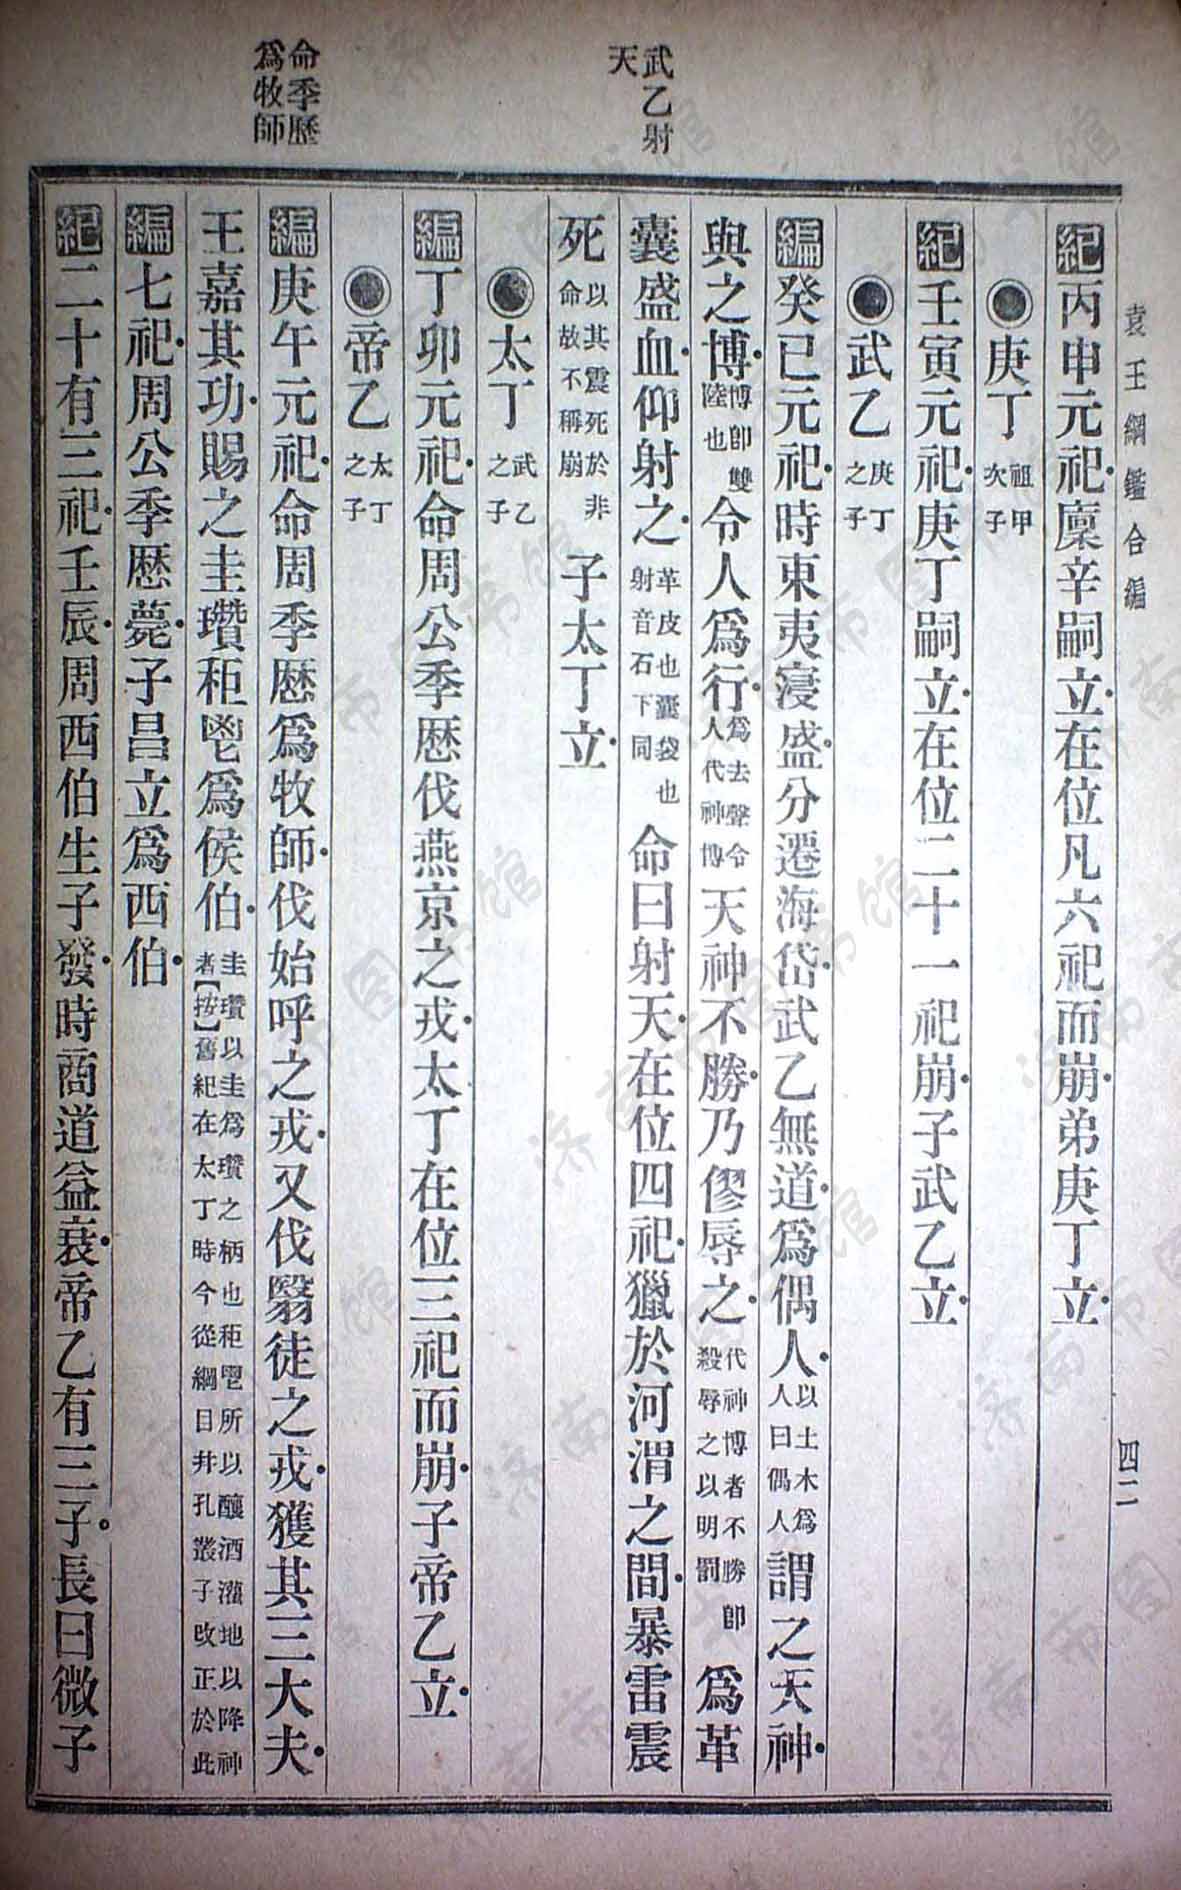 袁王綱鑑合編
四二
武乙射
天
命季歷
爲牧師
紀丙申元祀廩辛嗣立在位凡六祀而崩弟庚丁立
庚丁祖甲次子
紀壬寅元祀庚丁嗣立在位二十一祀崩子武乙立
武乙庚丁之子
編癸巳元祀時東夷寖盛分遷海岱武乙無道爲偶人以土木爲人曰偶人謂之天神
與之博博即雙陸也令人爲行爲去聲令人代神博天神不勝乃僇辱之代神博者不勝即殺辱之以明罰爲革
囊盛血仰射之革皮也囊袋也射音石下同命曰射天在位四祀獵於河渭之間暴雷震
死以其震死於非命故不稱崩子太丁立
太丁武乙之子
編丁卯元祀命周公季歷伐燕京之戎太丁在位三祀而崩子帝乙立
帝乙太丁之子
編庚午元祀命周季歷爲牧師伐始呼之戎又伐翳徒之戎獲其三大夫
王嘉其功賜之圭瓚秬鬯爲侯伯圭瓚以圭爲瓚之柄也秬鬯所以釀酒灌地以降神者【按】舊紀在太丁時今從綱目幷孔叢子改正於此
編七祀周公季歷薨子昌立爲西伯
紀二十有三祀壬辰周西伯生子發時商道益衰帝乙有三子長曰微子